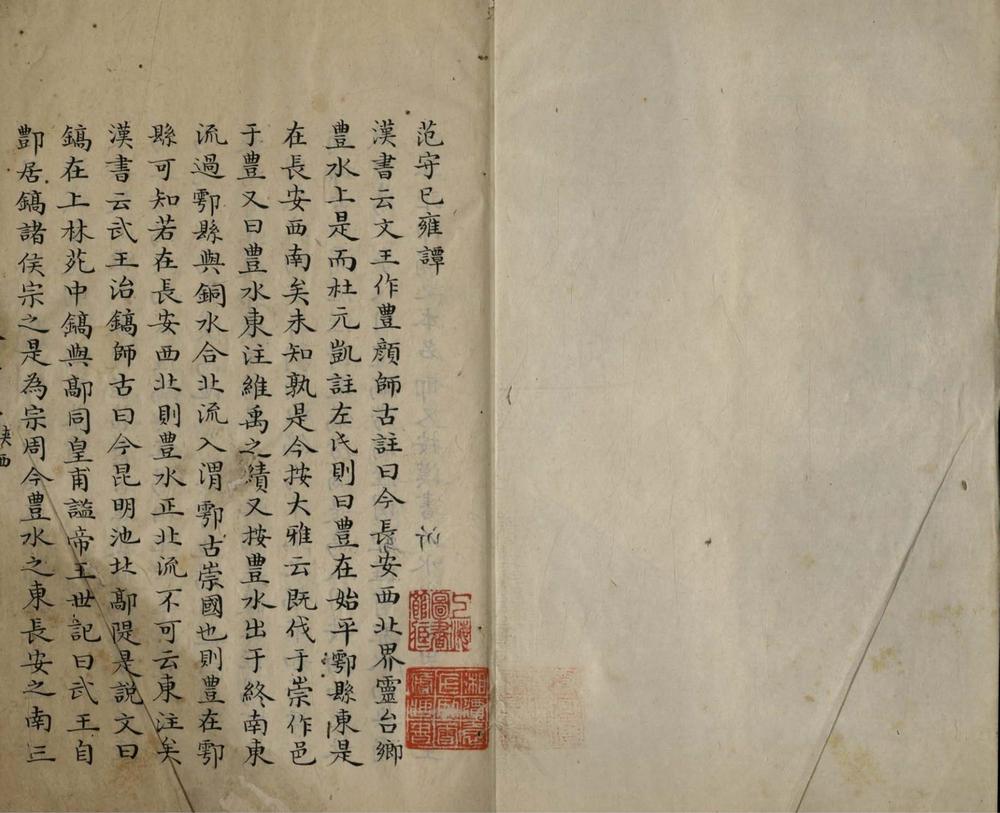 范守已雍譚
漢書云文王作豊顔師古註曰今長安西北界靈台鄉
豊水上是而杜元凱註左氏則曰豊在始平鄠縣東是
在長安西南矣未知孰是今按大雅云既伐于崇作邑
于豊又曰豊水東注維禹之績又按豊水出于終南東
流過鄠縣與銅水合北流入渭鄠古崇國也則豊在鄠
縣可知若在長安西北則豊水正北流不可云東注矣
漢書云武王治鎬師古曰今昆明池北鄗隄是説文曰
鎬在上林苑中鎬與鄗同皇甫謐帝王世記曰武王自
酆居鎬諸侯宗之是為宗周今豊水之東長安之南三
陝西